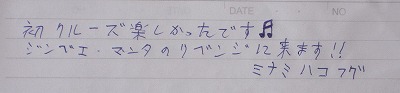 DATE NO
初クルーズ楽しかったです♬
ジンベエ・マンタのリベンジに来ます!!
ミナミハコフグ